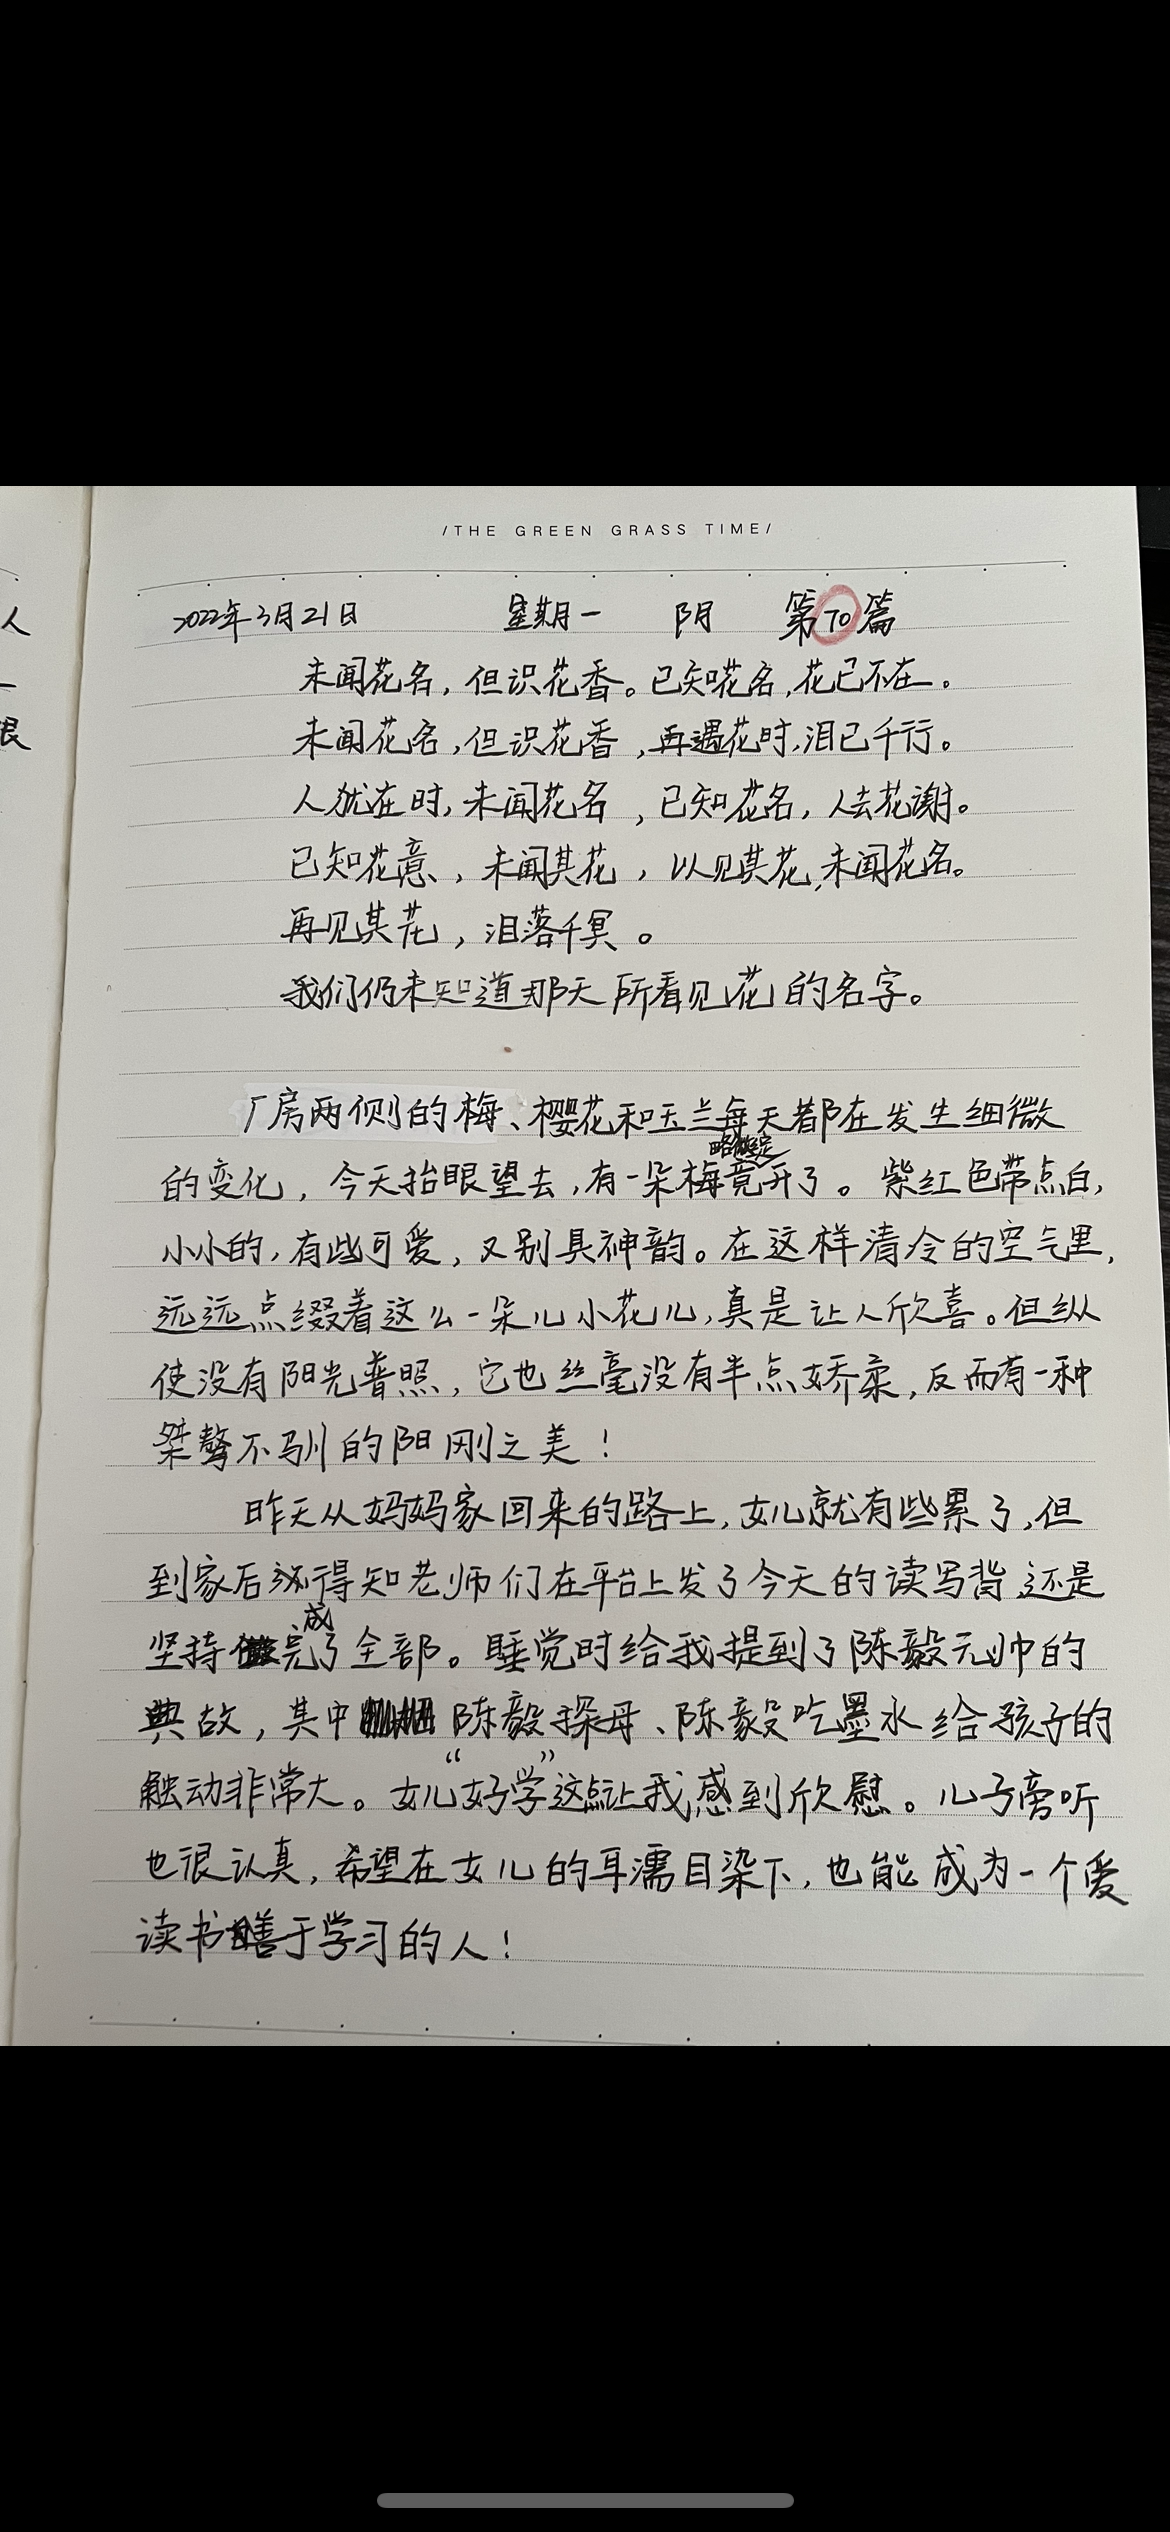 /THE GREEN GRASS TIME/
人
限
2022年3月21日 星期一 阴 第70篇
未闻花名，但识花香。已知花名，花已不在。
未闻花名，但识花香，再遇花时，泪已千行。
人犹在时，未闻花名，已知花名，人去花谢。
已知花意，未闻其花，以见其花，未闻花名。
再见其花，泪落千冥。
我们仍未知道那天所看见花的名字。
厂房两侧的梅、樱花和玉兰每天都在发生细微
的变化，今天抬眼望去，有一朵梅竟开了。紫红色带点白，
小小的，有些可爱，又别具神韵。在这样清冷的空气里，
远远点缀着这么一朵儿小花儿，真是让人欣喜。但纵
使没有阳光普照，它也丝毫没有半点娇柔，反而有一种
桀骜不驯的阳刚之美！
昨天从妈妈家回来的路上，女儿就有些累了，但
到家后得知老师们在平台上发了今天的读写背，还是
坚持完成了全部。睡觉时给我提到了陈毅元帅的
典故，其中陈毅探母、陈毅吃墨水给孩子的
触动非常大。女儿“好学”这点让我感到欣慰。儿子旁听
也很认真，希望在女儿的耳濡目染下，也能成为一个爱
读书善于学习的人！